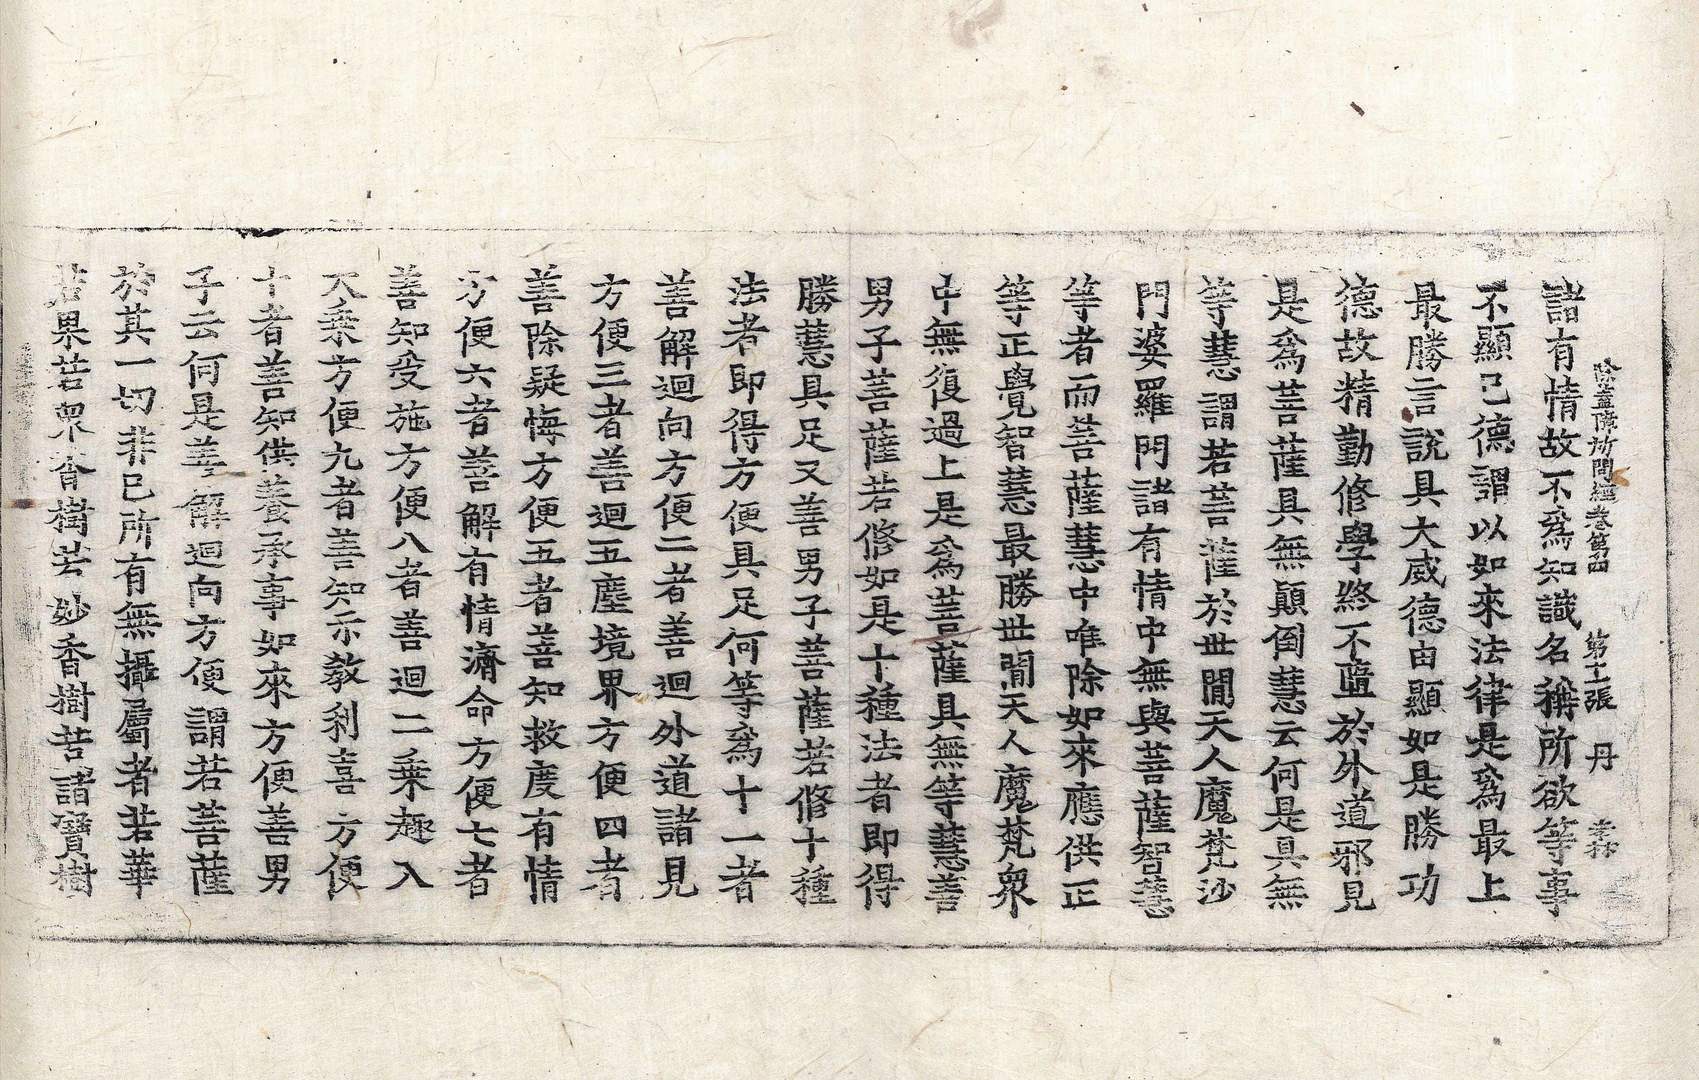 除蓋障所問經卷第四　第十二張　丹
諸有情故不爲知識名稱所欲等事
不顯己德謂以如來法律是爲最上
最勝言說具大威德由顯如是勝功
德故精勤修學終不墮於外道邪見
是爲菩薩具無顛倒慧云何是具無
等慧謂若菩薩於世間天人魔梵沙
門婆羅門諸有情中無與菩薩智慧
等者而菩薩慧中唯除如來應供正
等正覺智慧最勝世間天人魔梵衆
中無復過上是爲菩薩具無等慧善
男子菩薩若修如是十種法者即得
勝慧具足又善男子菩薩若修十種
法者即得方便具足何等爲十一者
善解迴向方便二者善迴外道諸見
方便三者善迴五塵境界方便四者
善除疑悔方便五者善知救度有情
方便六者善解有情濟命方便七者
善知受施方便八者善迴二乘趣入
大乘方便九者善知示教利喜方便
十者善知供養承事如來方便善男
子云何是善解迴向方便謂若菩薩
於其一切非己所有無攝屬者若華
若果若衆香樹若妙香樹若諸寶樹